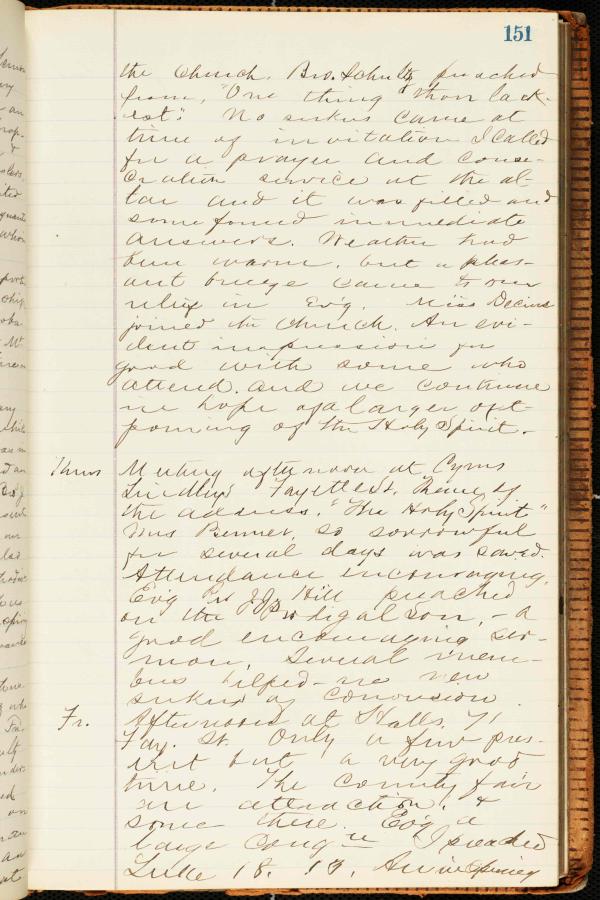 151
the Church. Bro. Schultz preached
from, "One thing thou lack-
est." No seekers came at
time of invitation I called
for a prayer and conse-
cration service at the al-
tar and it was filled and
some found immediate
answers. Weather had
been warm, but a pleas-
ant breeze came to our
relief in Ev'g. Miss Decius
joined the Church. An evi-
dent impression for
good with some who
attend. and we continue
in hope of a larger out-
pouring of the Holy Spirit.
Thurs Meeting afternoon at Cyrus
Lindley's Fayette St. Theme of
the address, "The Holy Spirit"
Mrs Benner, so sorrowful
for several days was saved.
Attendance encouraging.
Ev'g Bro J.J. Hill preached
on the Prodigal Son, - a
good encouraging ser-
mon, Several mem-
bers helped - no new
seekers of conversion.
Fr. Afternoon at Halls,
Fay. St. Only a few pres-
ent but a very good
time. The county fair
an attraction, &
some there. Ev'g a
large Cong n I preached
Luke 18. 13. An inspiring